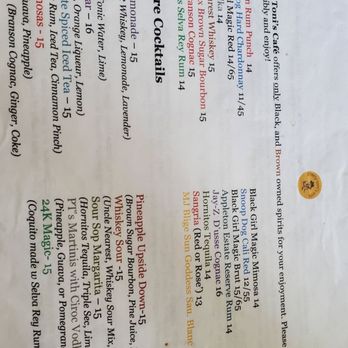 Toni's Café offers only Black, and Brown owned spirits for your enjoyment. Please
ibly and enjoy!
n Rum Punch 14
Dog Hard Chardonnay 11/45
l Magic Red 14/65
ka 14
arest Whiskey 15
x Brown Sugar Bourbon 15
ranson Cognac 15
s Selva Rey Rum 14
Black Girl Magic Mimosa 14
Snoop Dog Cali Red 12/55
Black Girl Magic Brut 15/65
Appleton Estate Reserve Rum 14
Jay-Z D'usse Cognac 16
Hornitos Tequila 14
Sangria (Red or Rose') 13
MJ Blige Sun Goddess Sau. Blanc
re Cocktails
monade – 15
Whiskey, Lemonade, Lavender)
onic Water, Lime)
ar – 16
, Orange Liqueur, Lemon)
te Spiced Iced Tea – 15
Rum, Iced Tea, Cinnamon Pinch)
nosas - 15
uava, Pineapple)
(Branson Cognac, Ginger, Coke)
Pineapple Upside Down-15
(Brown Sugar Bourbon, Pine Juice,
Whiskey Sour -15
(Uncle Nearest, Whiskey Sour Mix,
Sour Sop Margarita – 15
(Hornitos Tequila, Triple Sec, Lim
PT's Martinis with Ciroc Vodk
(Pineapple, Guava, or Pomegran
24K Magic- 15
(Coquito made w Selva Rey Rum